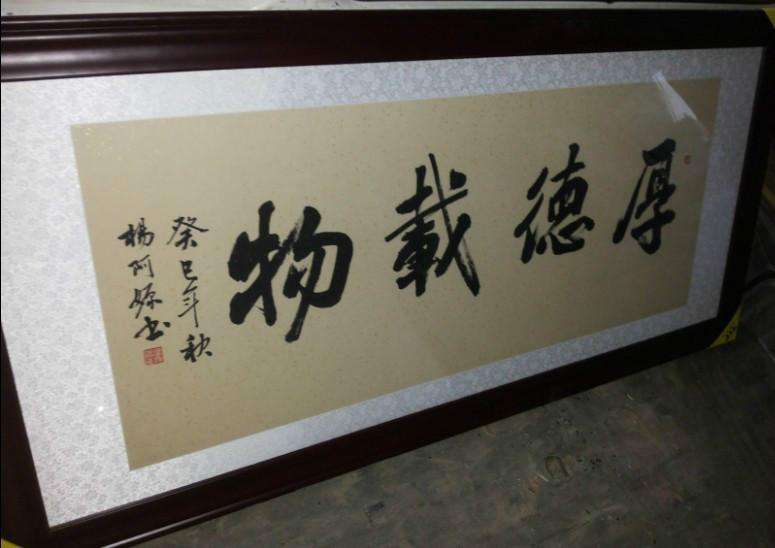 厚德載物
癸巳年秋
楊阿源书